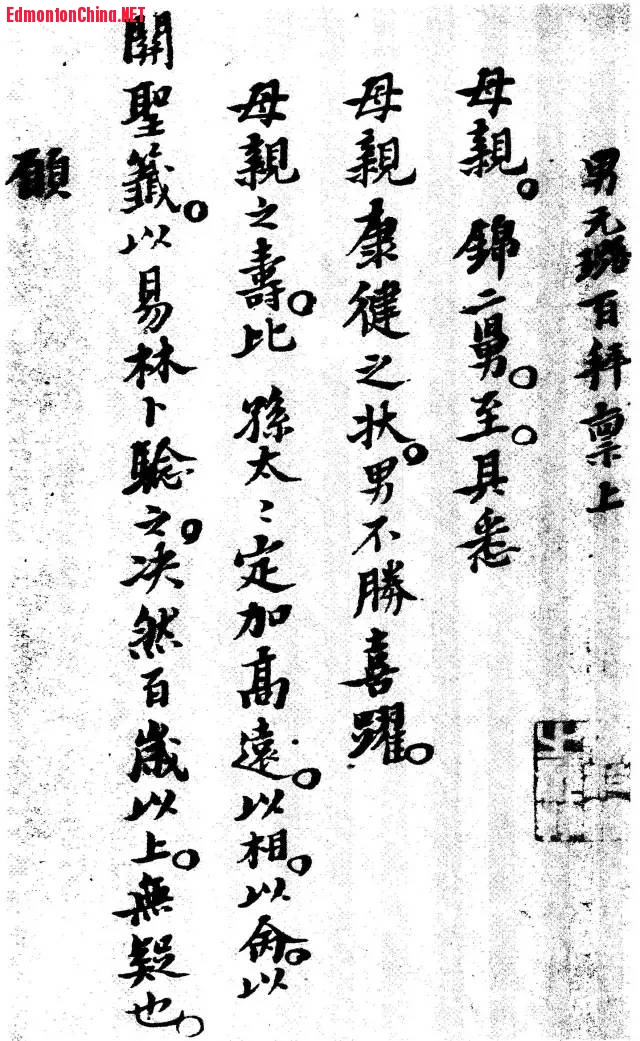 EdmontonChina.NET
男元璐百拜禀上
母親。錦二舅。至。具悉
母親康健之狀。男不勝喜躍。
母親之壽。比孫太〻定加高遠。以相。以命。以
關聖籤。以易林卜驗之。决然百歲以上。無疑也。
願